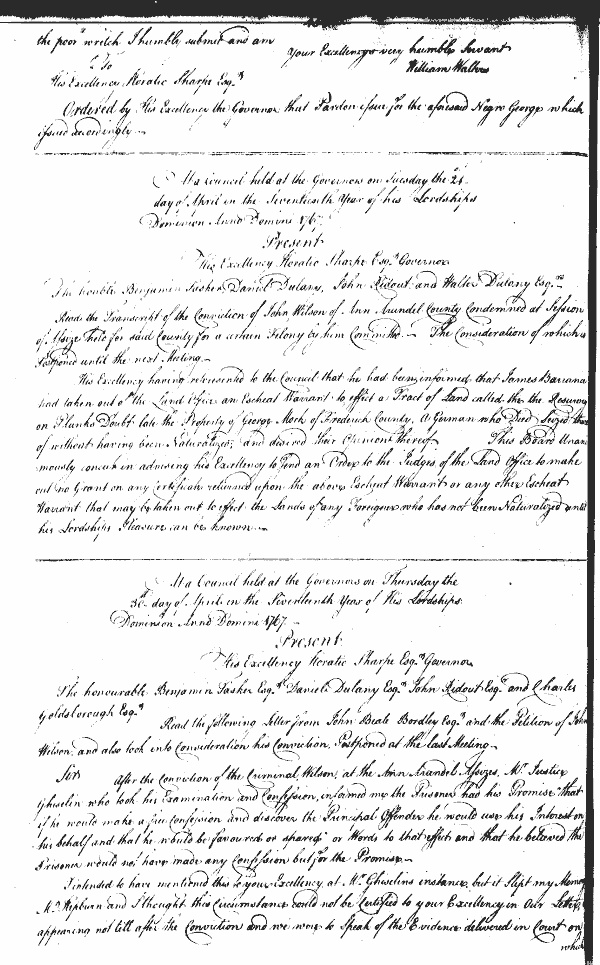 the poor wretch I humbly submit and am
Your Excellencys very humble Servant
To William Walker
His Excellency Horatio Sharpe Esqr
Ordered by His Excellency the Governor that Pardon issue for the aforesaid Negro George which
issued accordingly.
At a Council held at the Governors on Tuesday the 21
day of April in the Seventeenth Year of his Lordships
Dominion Anno Domini 1767.
Present
His Excellency Horatio Sharpe Esqr Governor
The honble Benjamin Tasker, Daniel Dulany, John Ridout and Walter Dulany Esqrs
Read the Transcript of the Conviction of John Wilson of Ann Arundel County Condemned at Session
of Assize held for said County for a certain Felony by him Committed The Consideration of which is
Postponed until the next Meeting.
His Excellency having represented to the Council that he had been informed that James
had taken out of the Land Office an Escheat Warrant to effect a Tract of Land called the the Resurvey
on Planks Doubt late the Property of George Mock of Frederick County, a German who Died Seized
of without having been Naturalized, and desired their Opinion thereof This Board Unani
mously concur in advising his Excellency to send an Order to the Judges of the Land Office to make
out no Grant on any Certificate returned upon the above Escheat Warrant or any other Escheat
Warrant that may be taken out to effect the Lands of any Foreigner who has not been Naturalized until
his Lordships Pleasure can be known.
At a Council held at the Governors on Thursday the
30 day of April in the Seventeenth Year of His Lordships
Dominion Anno Domini 1767.
Present
His Excellency Horatio Sharpe Esqr Governor
The honourable Benjamin Tasker Esqr Daniel Dulany Esqr John Ridout Esqr and Charles
Goldsborough Esqr
Read the following Letter from John Beale Bordley Esqr and the Petition of John
Wilson, and also took into Consideration his Conviction, Postponed at the last Meeting.
Sir After the Conviction of the Criminal Wilson, at the Ann Arundel Assizes, Mr Justice
Ghiselin who took his Examination and Confession, informed me the Prisoner had his Promise "that
if he would make a free Confession and discover the Principal Offender he would use his Interest on
his behalf and that he would be favoured or spared" or Words to that effect and that he believed the
Prisoner would not have made any Confession but for the Promise.
I intended to have mentioned this to your Excellency at Mr Ghiselins instance, but it Slipt my Memory
Mr Hepburn and I thought this Circumstance could not be Certified to your Excellency in Our Letter,
appearing not till after the Conviction and we were to speak of the Evidence delivered in Court on